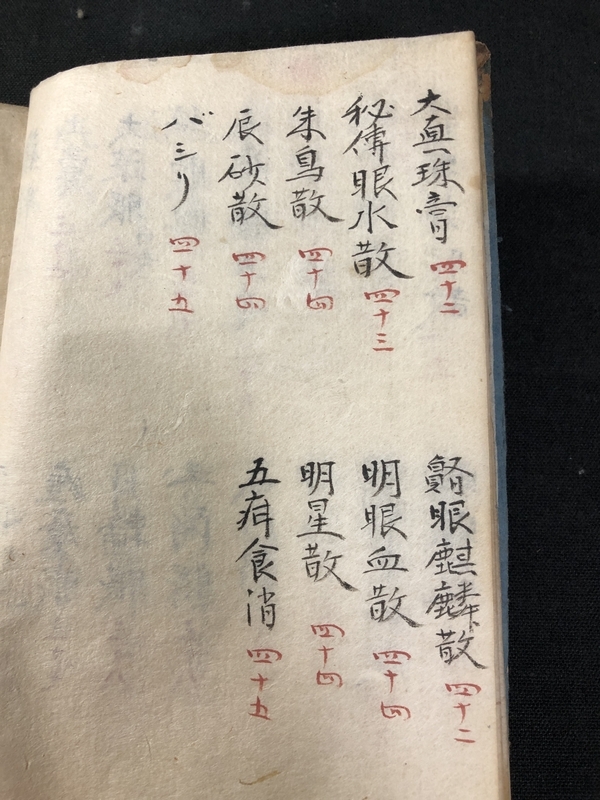 大真珠膏 四十二
眼麒麟散 四十二
秘傳眼水散 四十三
明眼血散 四十四
朱鳥散 四十四
明星散 四十四
辰砂散 四十四
五疳食消 四十五
バミリ 四十五